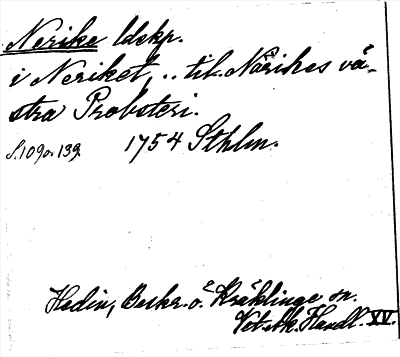 Nerike ldskp.
i Neriket, .. til Närikes vä-
stra Probsteri.
S. 109 o. 139. 1754 Sthlm.
Hedin, Beskr. ö. Kräklinge sn.
Vet. Ak. Handl. XV.